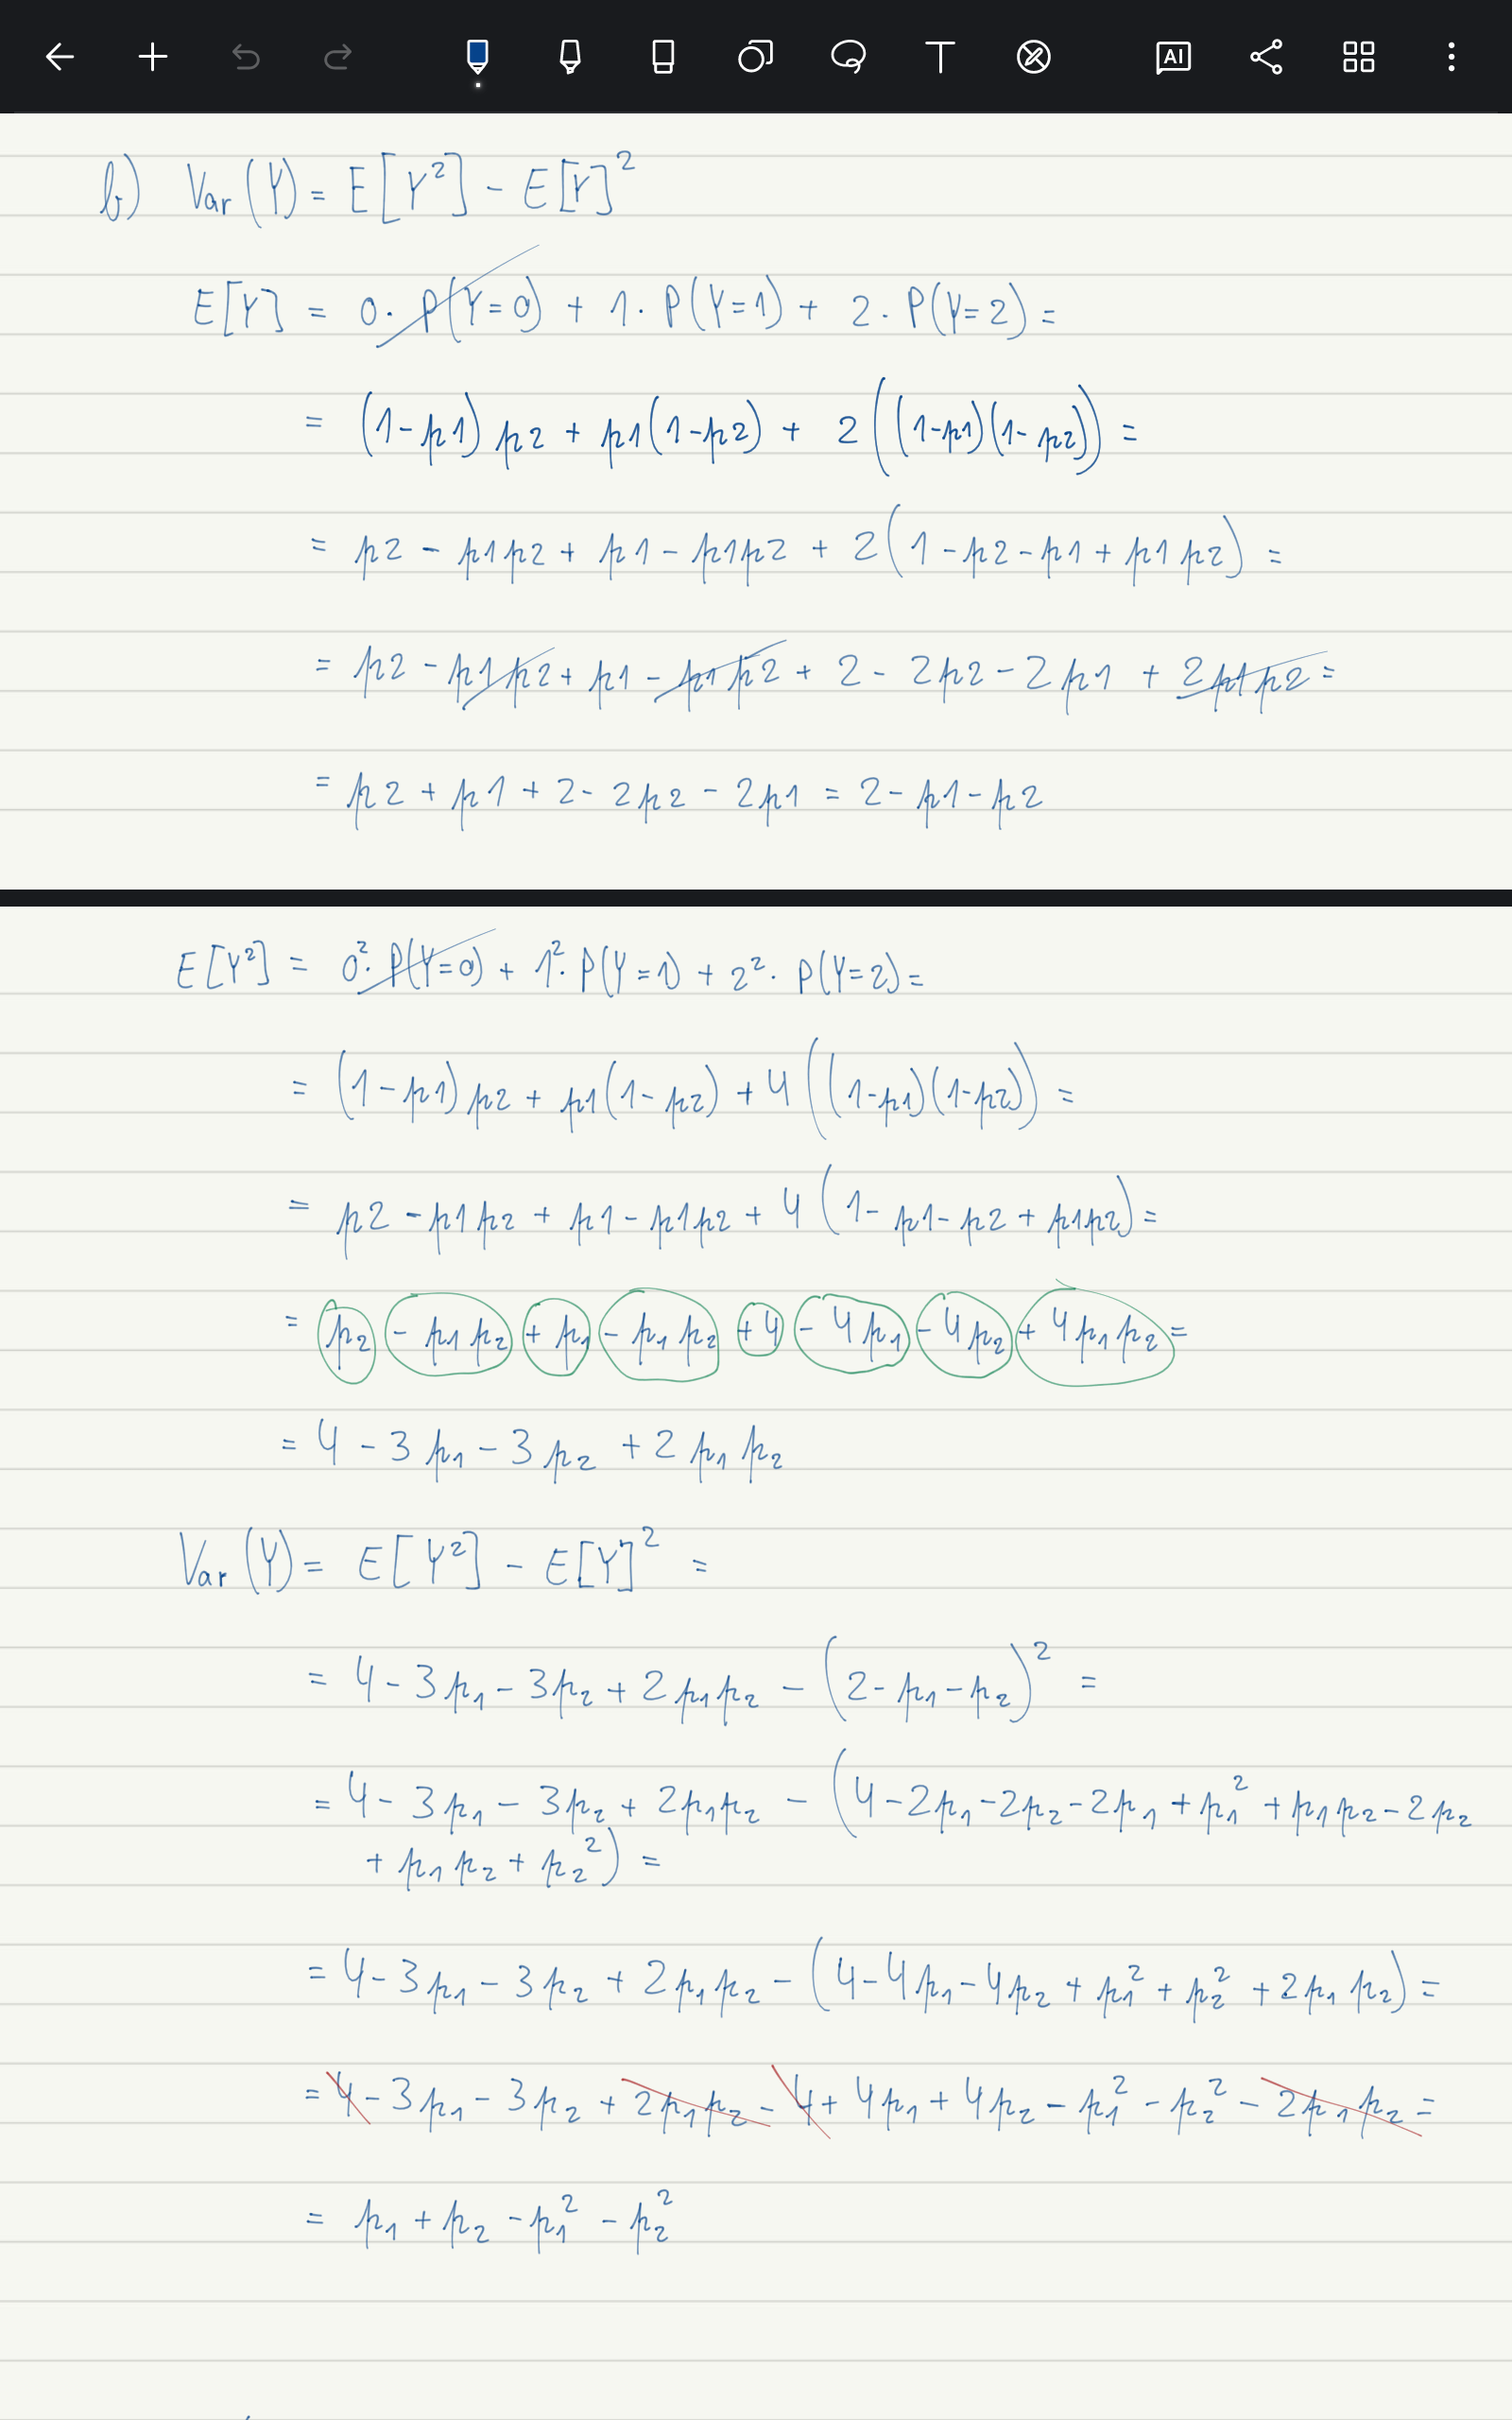 T
AI
b) Var(Y) = E[Y²] - E[Y]²
E[Y] = 0 · P(Y=0) + 1 · P(Y=1) + 2 · P(Y=2) =
= (1-p1) p2 + p1(1-p2) + 2((1-p1)(1-p2)) =
= p2 - p1p2 + p1 - p1p2 + 2(1-p2-p1+p1p2) =
= p2 - p1p2 + p1 - p1p2 + 2 - 2p2 - 2p1 + 2p1p2 =
= p2 + p1 + 2 - 2p2 - 2p1 = 2 - p1 - p2
E[Y²] = 0² · P(Y=0) + 1² · P(Y=1) + 2² · P(Y=2) =
= (1-p1)p2 + p1(1-p2) + 4((1-p1)(1-p2)) =
= p2 - p1p2 + p1 - p1p2 + 4(1-p1-p2+p1p2) =
= p₂ - p₁p₂ + p₁ - p₁p₂ + 4 - 4p₁ - 4p₂ + 4p₁p₂ =
= 4 - 3p₁ - 3p₂ + 2p₁p₂
Var(Y) = E[Y²] - E[Y]² =
= 4 - 3p₁ - 3p₂ + 2p₁p₂ - (2-p₁-p₂)² =
= 4 - 3p₁ - 3p₂ + 2p₁p₂ - (4-2p₁-2p₂-2p₁+p₁²+p₁p₂-2p₂
+ p₁p₂ + p₂²) =
= 4 - 3p₁ - 3p₂ + 2p₁p₂ - (4-4p₁-4p₂+p₁²+p₂²+2p₁p₂) =
= 4 - 3p₁ - 3p₂ + 2p₁p₂ - 4 + 4p₁ + 4p₂ - p₁² - p₂² - 2p₁p₂ =
= p₁ + p₂ - p₁² - p₂²